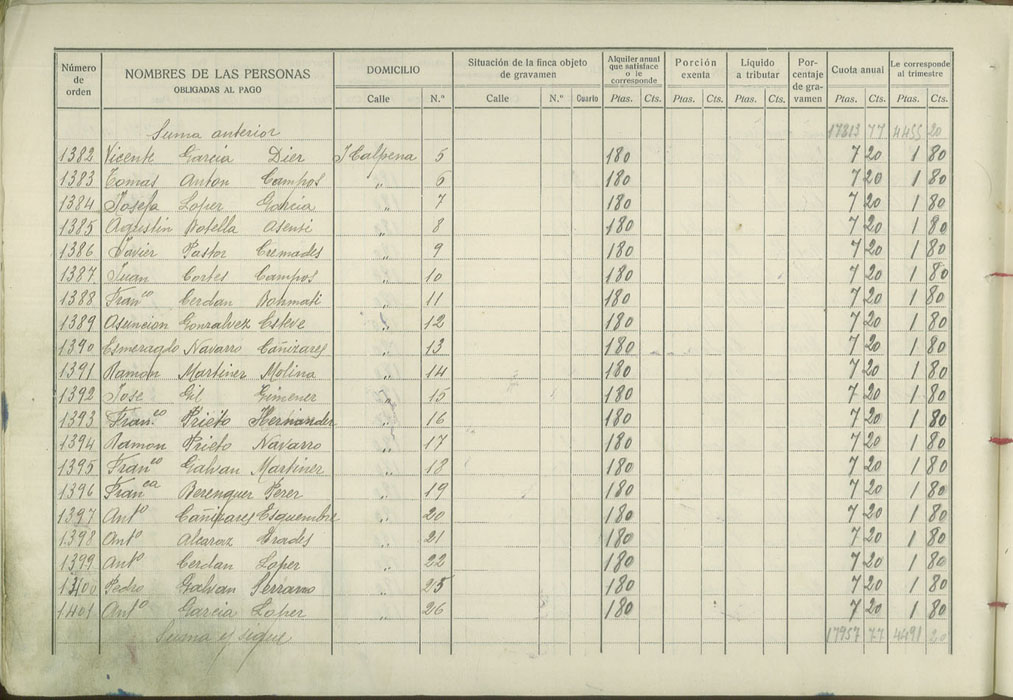 Número de orden NOMBRES DE LAS PERSONAS OBLIGADAS AL PAGO DOMICILIO Calle N.º Situación de la finca objeto de gravamen Calle N.º Cuarto Alquiler anual que satisface o le corresponde Ptas. Cts. Porción exenta Ptas. Cts. Líquido a tributar Ptas. Cts. Porcentaje de gravamen Cuota anual Ptas. Cts. Le corresponde al trimestre Ptas. Cts.
Suma anterior 17813 77 4455 20
1382 Vicente Garcia Dier J Calpena 5 180 7 20 1 80
1383 Tomas Anton Campos " 6 180 7 20 1 80
1384 Josefa Loper Garcia " 7 180 7 20 1 80
1385 Agustin Botella Asensi " 8 180 7 20 1 80
1386 Javier Pastor Cremades " 9 180 7 20 1 80
1387 Juan Cortes Campos " 10 180 7 20 1 80
1388 Fran.co Cerdan " 11 180 7 20 1 80
1389 Asuncion Gonzalvez Esteve " 12 180 7 20 1 80
1390 Esmeragdo Navarro Cañizares " 13 180 7 20 1 80
1391 Ramon Martiner Molina " 14 180 7 20 1 80
1392 Jose Gil Gimener " 15 180 7 20 1 80
1393 Fran.co Prieto Hernander " 16 180 7 20 1 80
1394 Ramon Prieto Navarro " 17 180 7 20 1 80
1395 Fran.co Galvan Martiner " 18 180 7 20 1 80
1396 Fran.ca Berenguer Perer " 19 180 7 20 1 80
1397 Ant.o Cañizares Esquembre " 20 180 7 20 1 80
1398 Ant.o Alcaraz Prades " 21 180 7 20 1 80
1399 Ant.o Cerdan Loper " 22 180 7 20 1 80
1400 Pedro Galvan Serrano " 25 180 7 20 1 80
1401 Ant.o Garcia Loper " 26 180 7 20 1 80
Suma y sigue 17957 77 4491 20